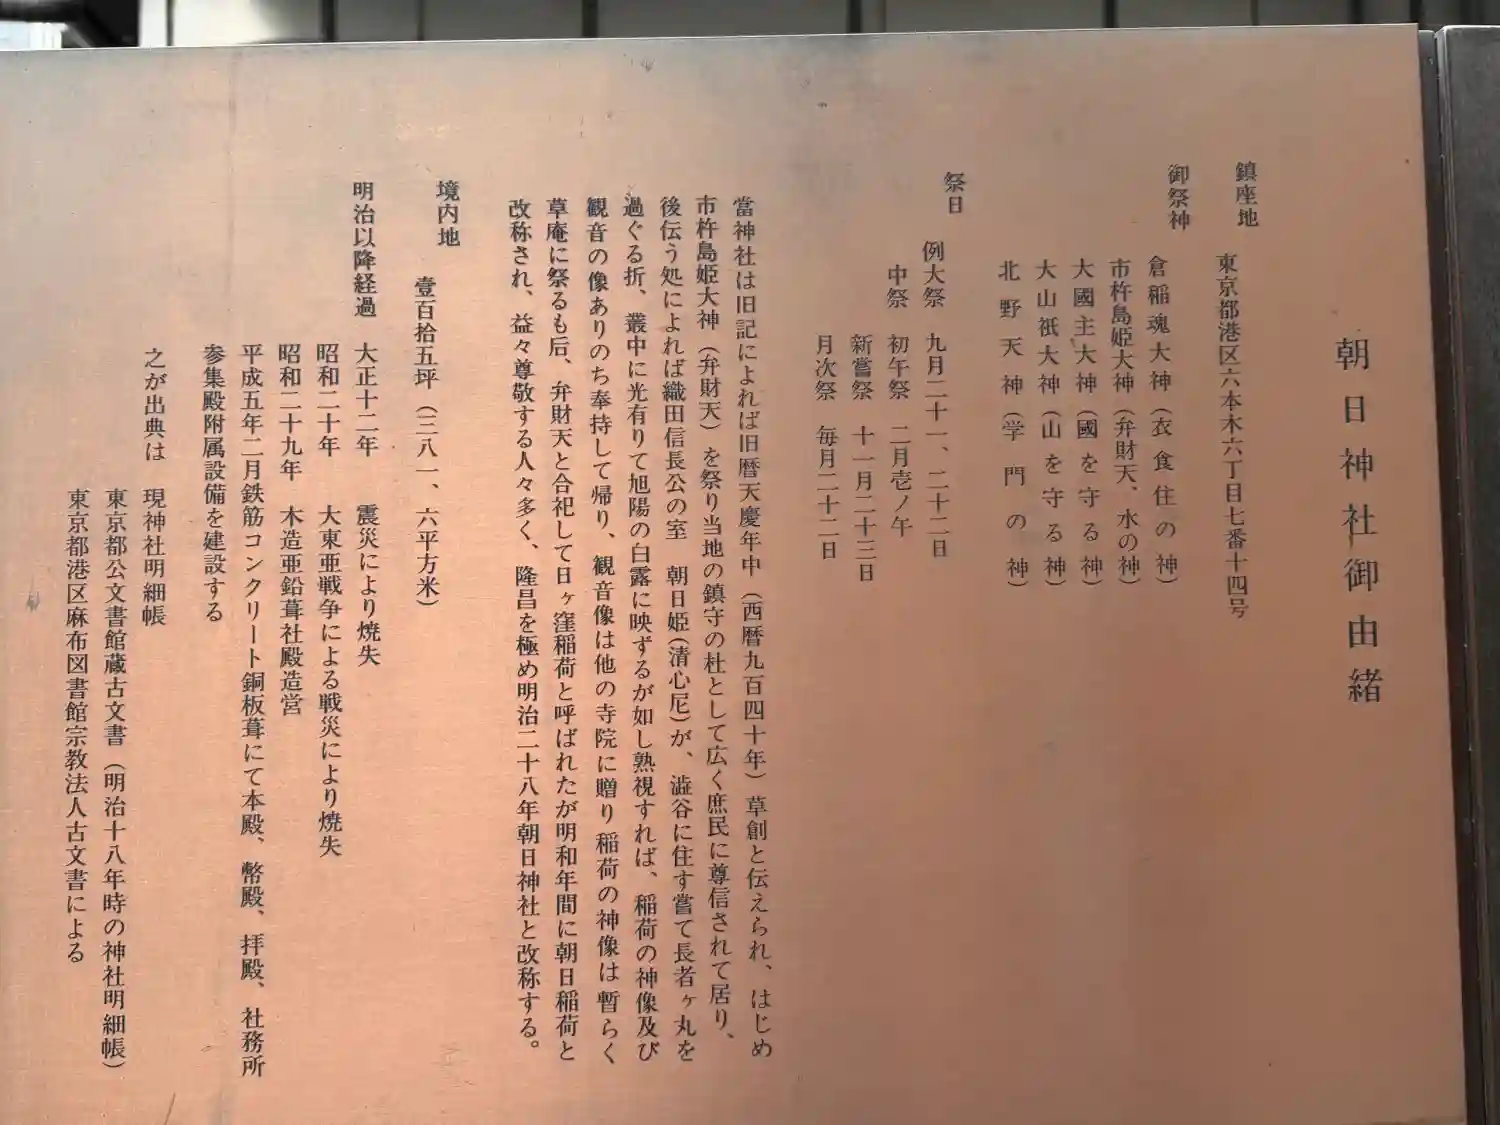 朝日神社御由緒
鎮座地
東京都港区六本木六丁目七番十四号
御祭神
倉稲魂大神（衣食住の神）
市杵島姫大神（弁財天、水の神）
大國主大神（國を守る神）
大山祇大神（山を守る神）
北野天神（学門の神）
祭日
例大祭 九月二十一、二十二日
中祭 初午祭 二月壱ノ午
新嘗祭 十一月二十三日
月次祭 毎月二十二日
當神社は旧記によれば旧暦天慶年中（西暦九百四十年）草創と伝えられ、はじめ
市杵島姫大神（弁財天）を祭り当地の鎮守の杜として広く庶民に尊信されて居り、
後伝う処によれば織田信長公の室 朝日姫（清心尼）が、澁谷に住す嘗て長者ヶ丸を
過ぐる折、叢中に光有りて旭陽の白露に映ずるが如し熟視すれば、稲荷の神像及び
観音の像ありのち奉持して帰り、観音像は他の寺院に贈り稲荷の神像は暫らく
草庵に祭るも后、弁財天と合祀して日ヶ窪稲荷と呼ばれたが明和年間に朝日稲荷と
改称され、益々尊敬する人々多く、隆昌を極め明治二十八年朝日神社と改称する。
境内地
壹百拾五坪（三八一、六平方米）
明治以降経過 大正十二年 震災により焼失
昭和二十年 大東亜戦争による戦災により焼失
昭和二十九年 木造亜鉛葺社殿造営
平成五年二月鉄筋コンクリート銅板葺にて本殿、幣殿、拝殿、社務所
参集殿附属設備を建設する
之が出典は 現神社明細帳
東京都公文書館蔵古文書（明治十八年時の神社明細帳）
東京都港区麻布図書館宗教法人古文書による